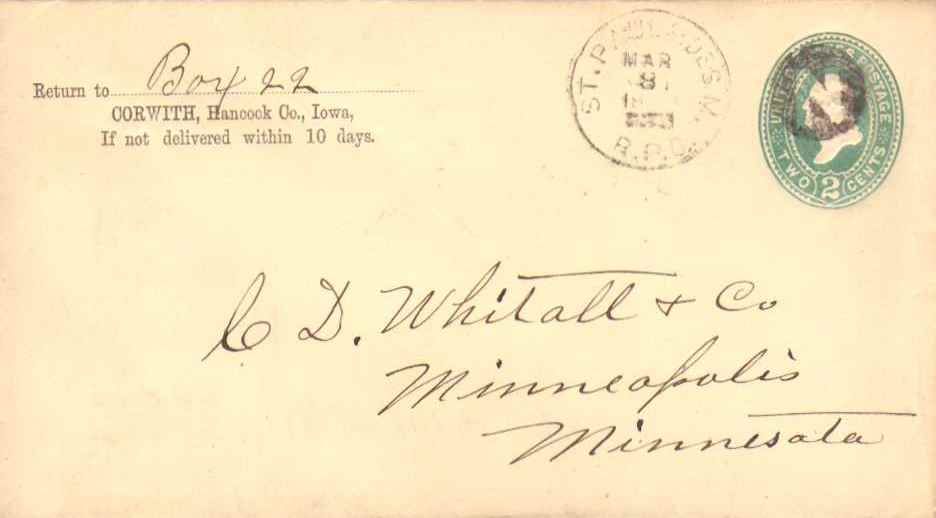 Return to Box 22
CORWITH, Hancock Co., Iowa,
If not delivered within 10 days.
ST. PAUL & DES M.
MAR
8
R.P.O.
UNITED STATES POSTAGE
TWO 2 CENTS
C D. Whitall & Co
Minneapolis
Minnesota